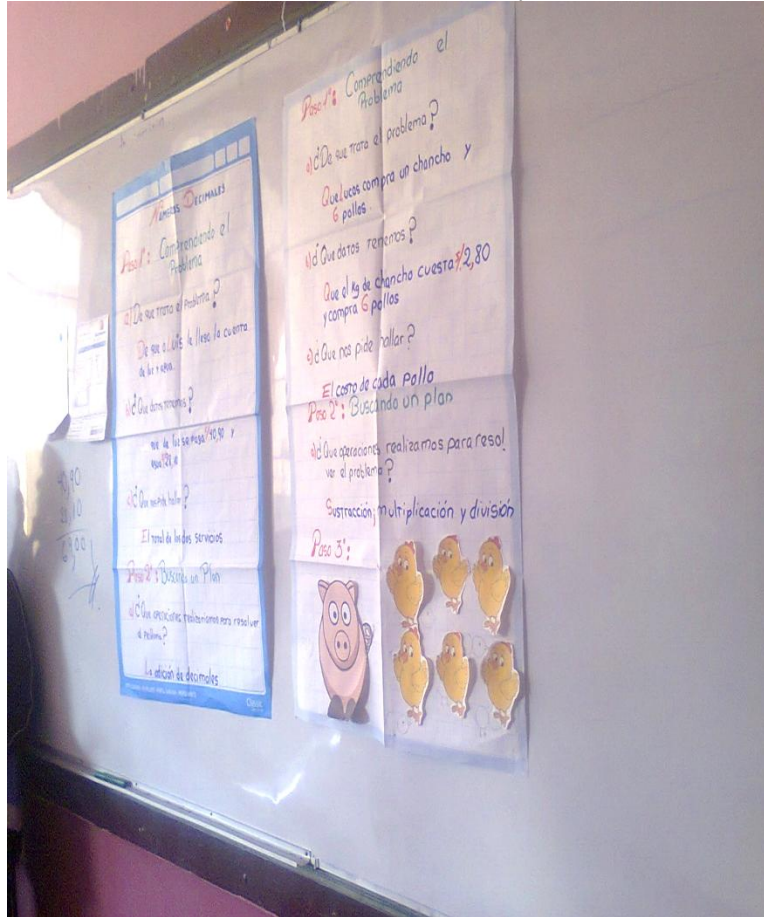 Números Decimales
Paso 1°: Comprendiendo el
Problema
a) De que trata el Problema?
De que a Luis le llega la cuenta
de luz y agua.
b) ¿Que datos tenemos?
que de luz se paga S/40,90 y
agua
c) ¿Que nos pide hallar?
El total de los dos servicios
Paso 2°: Buscando un Plan
a) ¿Que operaciones realizaremos para resolver
el problema?
La adición de decimales
Classic
40,90
69,00
Paso 1°: Comprendiendo el
Problema
a) ¿De que trata el problema?
Que Lucas compra un chancho y
6 pollos
b) ¿Que datos tenemos?
Que el Kg de chancho cuesta S/2,80
y compra 6 pollos
c) ¿Que nos pide hallar?
El costo de cada pollo
Paso 2°: Buscando un plan
a) ¿Que operaciones realizamos para resol
ver el problema?
Sustracción, multiplicación y división
Paso 3°: